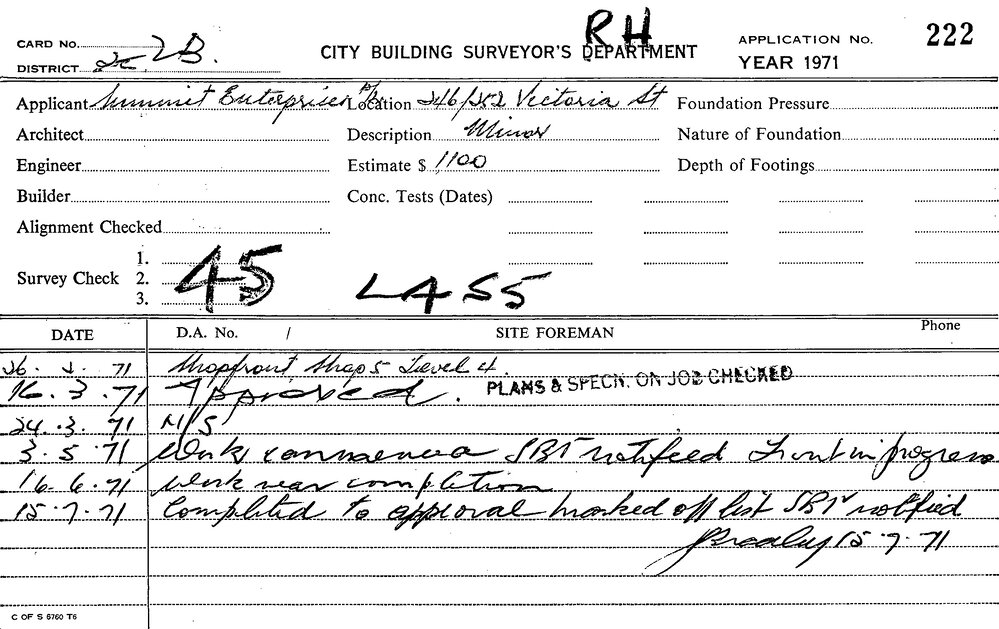 RH
CARD No. 2B.
DISTRICT
CITY BUILDING SURVEYOR'S DEPARTMENT
APPLICATION No. 222
YEAR 1971
Applicant Summit Enterprises P/L Location 246/252 Victoria St Foundation Pressure
Architect Description Minor Nature of Foundation
Engineer Estimate $ 1100 Depth of Footings
Builder Conc. Tests (Dates)
Alignment Checked
Survey Check 1.
2.
3.
45 LASS
DATE D.A. No. / SITE FOREMAN Phone
26. 2. 71 Shopfront Shop 5 Level 4.
16. 3. 71 Approved. PLANS & SPECN. ON JOB CHECKED
24. 3. 71 N/S
3. 5. 71 Work commenced SBI notified Front in progress
16. 6. 71 Work near completion
15. 7. 71 Completed to approval marked off list SBI notified
15. 7. 71
C OF S 6760 T6